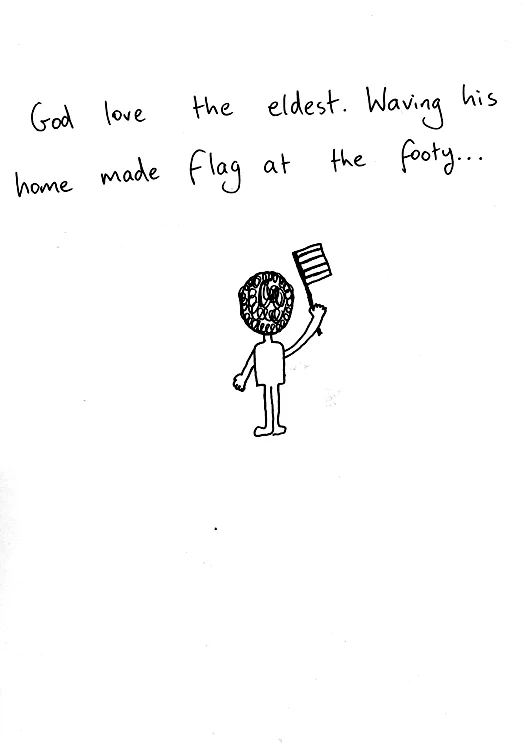 God love the eldest. Waving his
home made flag at the footy...